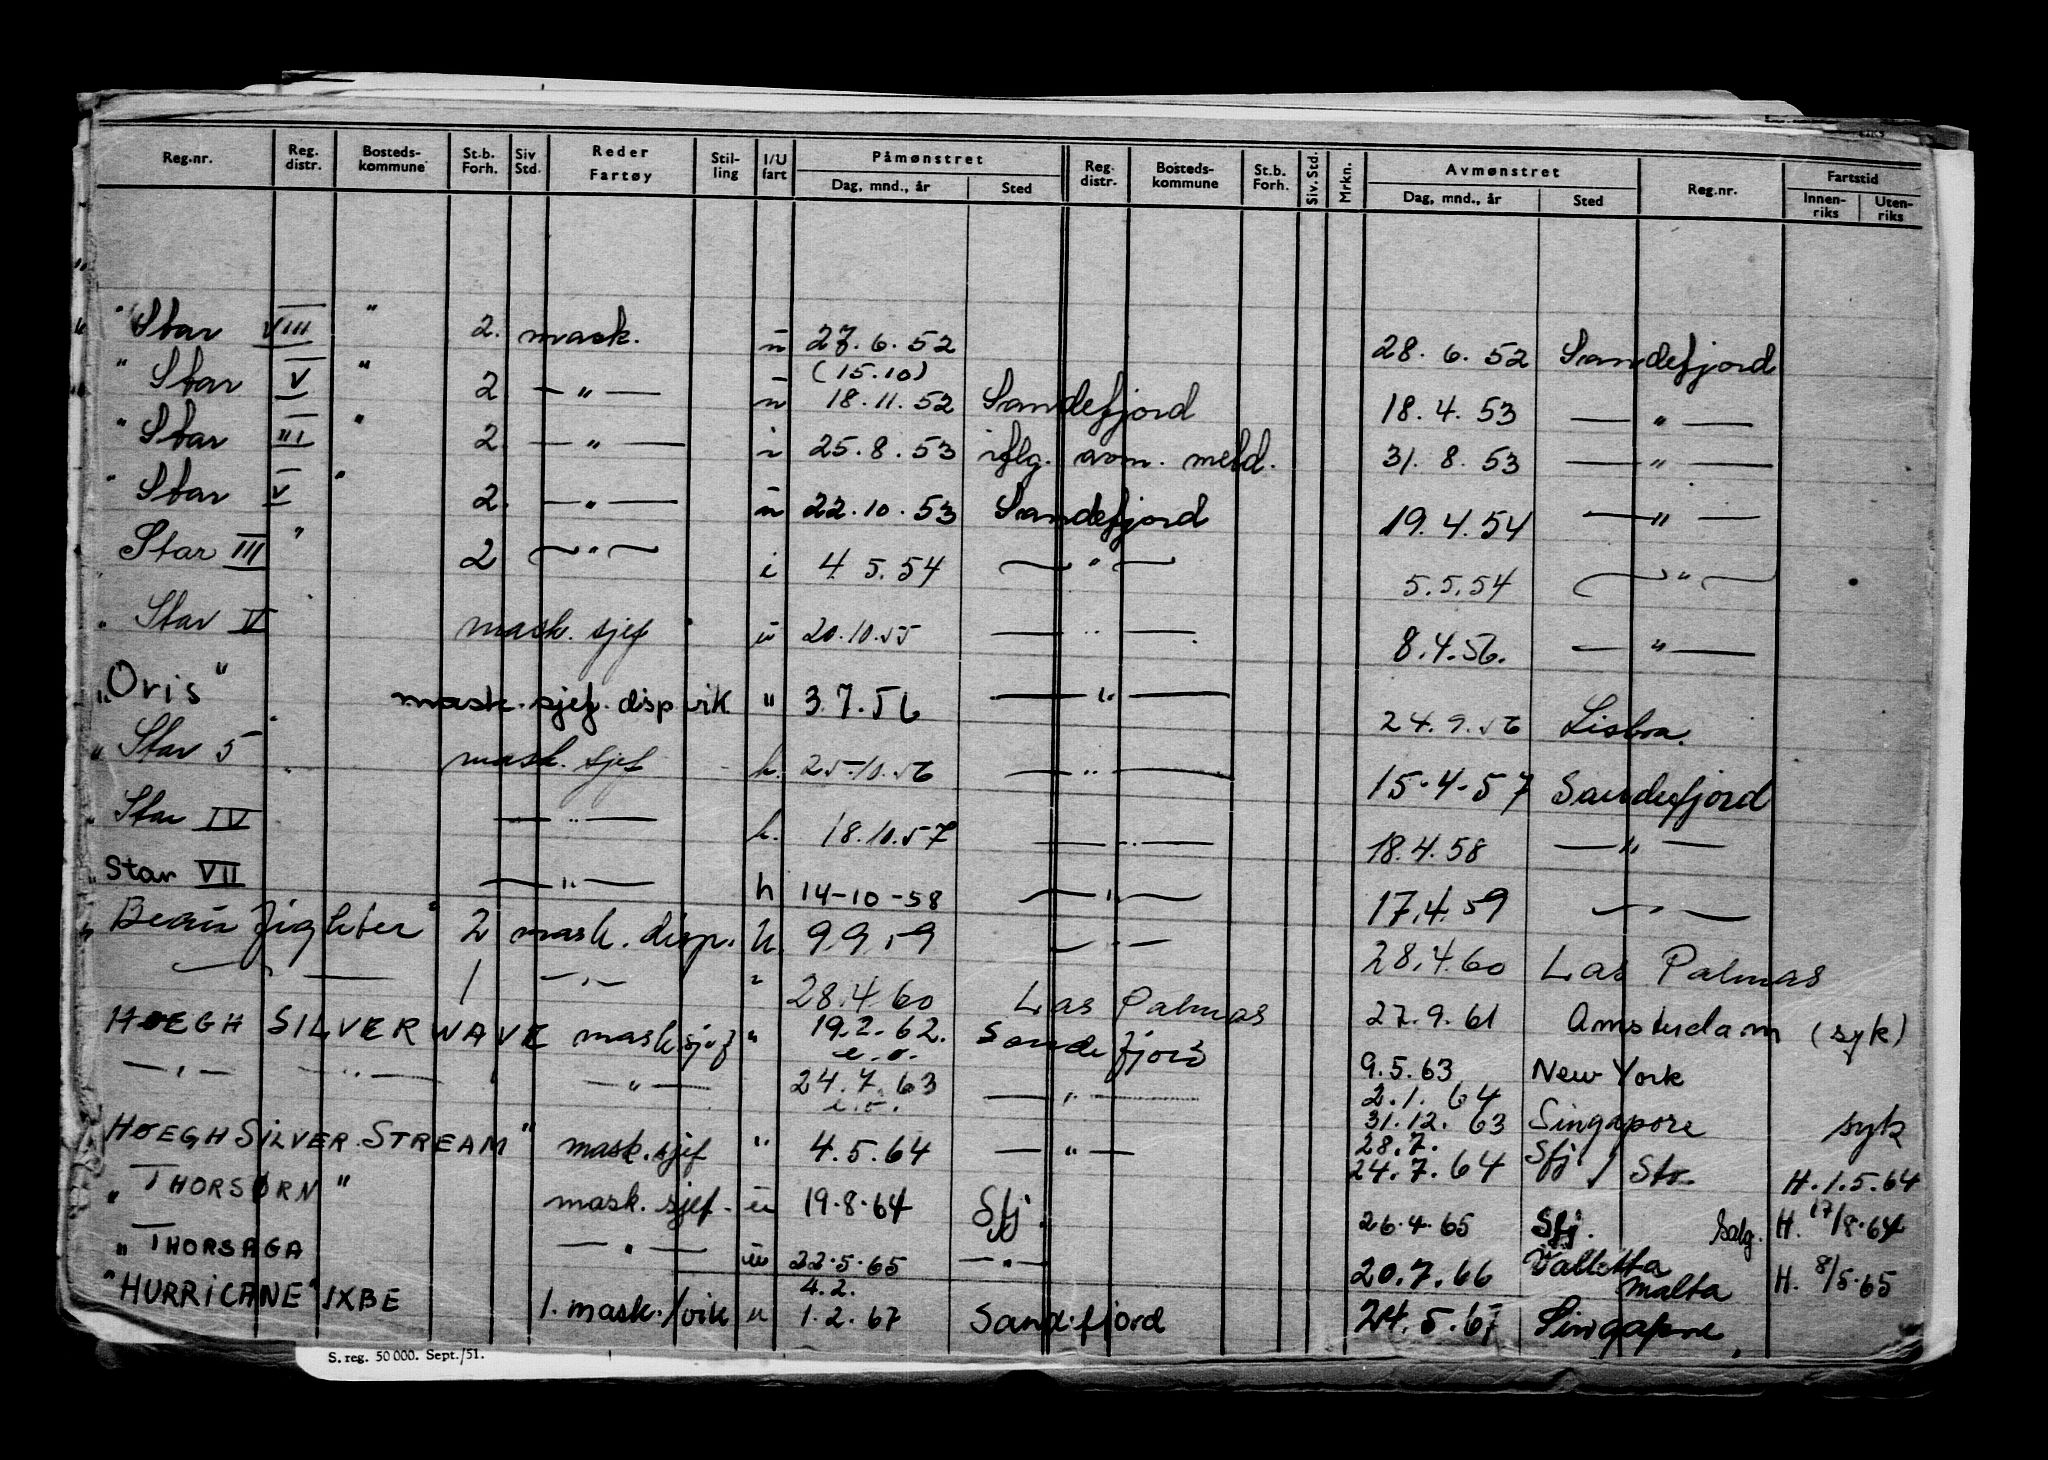 Reg.nr. Reg. distr. Bosteds-kommune St.b. Forh. Siv Std. Reder Fartøy Stil-ling I/U fart Påmønstret Dag, mnd., år Sted Reg. distr. Bosteds-kommune St.b. Forh. Siv. Std. Mrkn. Avmønstret Dag, mnd., år Sted Reg.nr. Fartstid Innen-riks Uten-riks
"Star VIII" 2. mask. u 27.6.52 28.6.52 Sandefjord
"Star V" 2 — " — u (15.10) 18.11.52 Sandefjord 18.4.53 — " —
"Star III" 2 — " — i 25.8.53 iflg. avm. meld. 31.8.53 — " —
"Star V" 2. — " — u 22.10.53 Sandefjord 19.4.54 — " —
Star III" 2 — " — i 4.5.54 — " — 5.5.54 — " —
"Star V" mask. sjef u 20.10.55 — " — 8.4.56. — " —
"Oris" mask. sjef. disp vik " 3.7.56 — " — 24.9.56 Lisboa.
"Star 5" mask. sjef u. 25.10.56 — " — 15-4-57 Sandefjord
"Star IV — " — u. 18.10.57 — " — 18.4.58 — " —
"Star VII — " — u 14-10-58 — " — 17.4.59 — " —
"Beaufighter" 2 mask. disp. u. 9.9.59 — " — 28.4.60 Las Palmas
— " — 1 — " — " 28.4.60 Las Palmas 27.9.61 Amsterdam (syk)
HOEGH SILVERWAVE mask sjef " 19.2.62. e.o. Sandefjord 9.5.63 New York
— " — — " — — " — 24.7.63 e.o. — " — 2.1.64 31.12.63 Singapore syk
HOEGH SILVER STREAM" mask. sjef " 4.5.64 — " — 28.7. 24.7.64 Sfj / Str. H. 1.5.64
"THORSØRN" mask. sjef - u 19.8.64 Sfj. 26.4.65 Sfj. Salg. H. 17/8.64
"THORSAGA — " — u 22.5.65 — " — 20.7.66 Valletta Malta H. 8/5.65
"HURRICANE" IXBE 1. mask./vik u 4.2. 1.2.67 Sandefjord 24.5.67 Singapore.
S. reg. 50 000. Sept./51.